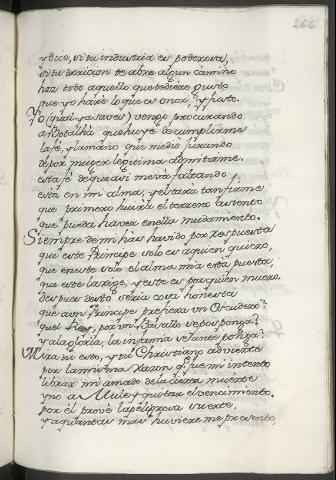 266
y dice, si tu industria es poderosa,
si tu traicion te abre algun camino
haz todo aquello que te diere gusto
que yo hare lo que es onor, y justo.
Yo (qual ya saves) vengo procurando
a que huye de cumplirme
la fe, y la mano que me dio jurando
de por muger legitima admitirme.
esta fe de que asi me va faltando
esta en mi alma, y estara tan firme
que primero huira el terreno asiento
que pueda haver en ella mudamiento.
Siempre de mi has havido por respuesta
que este Principe solo es a quien quiero,
que en este solo el alma mia esta puesta,
que este la rige, y este es por quien muero.
despues desto seria cosa honesta
que a un Principe prefiera un Escudero?
que el Rey, por un Vasallo se posponga?
y a la gloria, la infamia se anteponga?
Mira tu esto, y tu Christiano advierte
por la misma razon que me intento
librar mi amado de la fiera muerte
y no a Mule quitar el vencimiento.
por el prove la peligrosa suerte,
y a quantas mas huviere me presento,